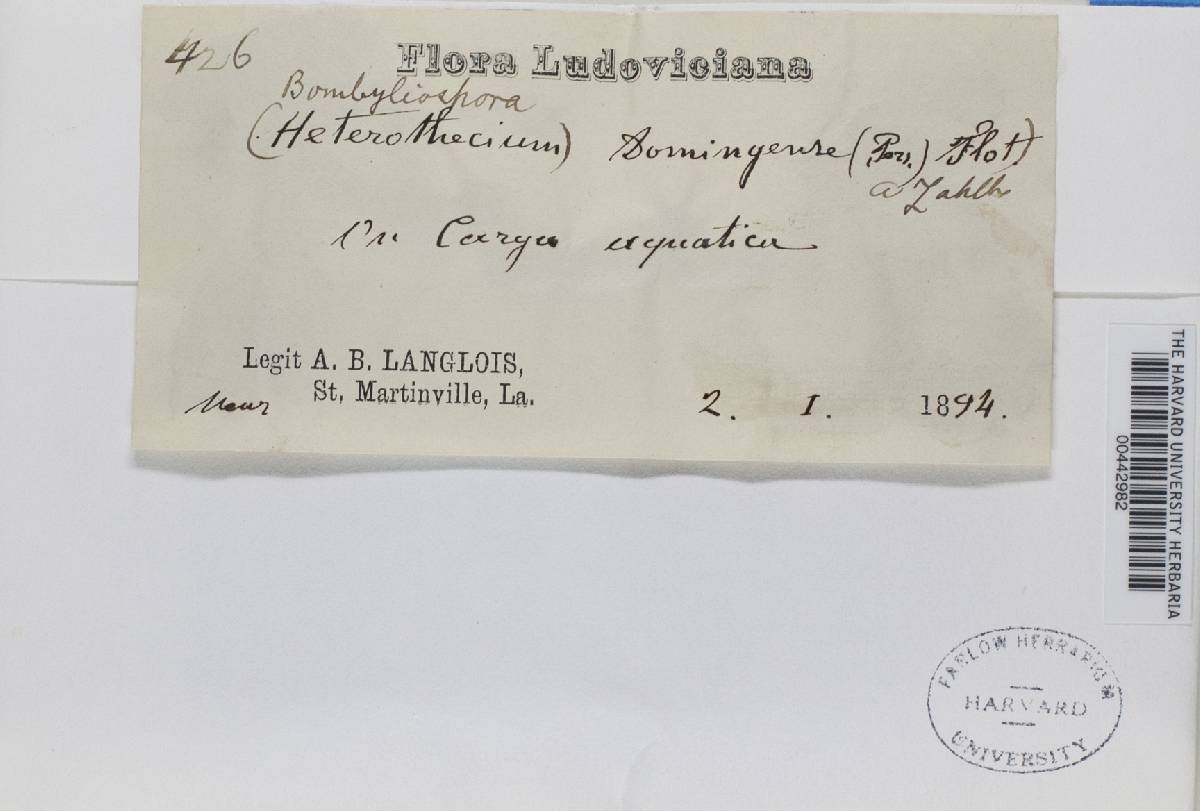 426
Flora Ludoviciana
Bombyliospora
(Heterothecium) Domingense (Pers.) Flot)
a Zahlb
On Carya aquatica
Legit A. B. LANGLOIS,
near St, Martinville, La.
2. 1. 1894.
THE HARVARD UNIVERSITY HERBARIA
00442982
FARLOW HERBARIUM
HARVARD
UNIVERSITY